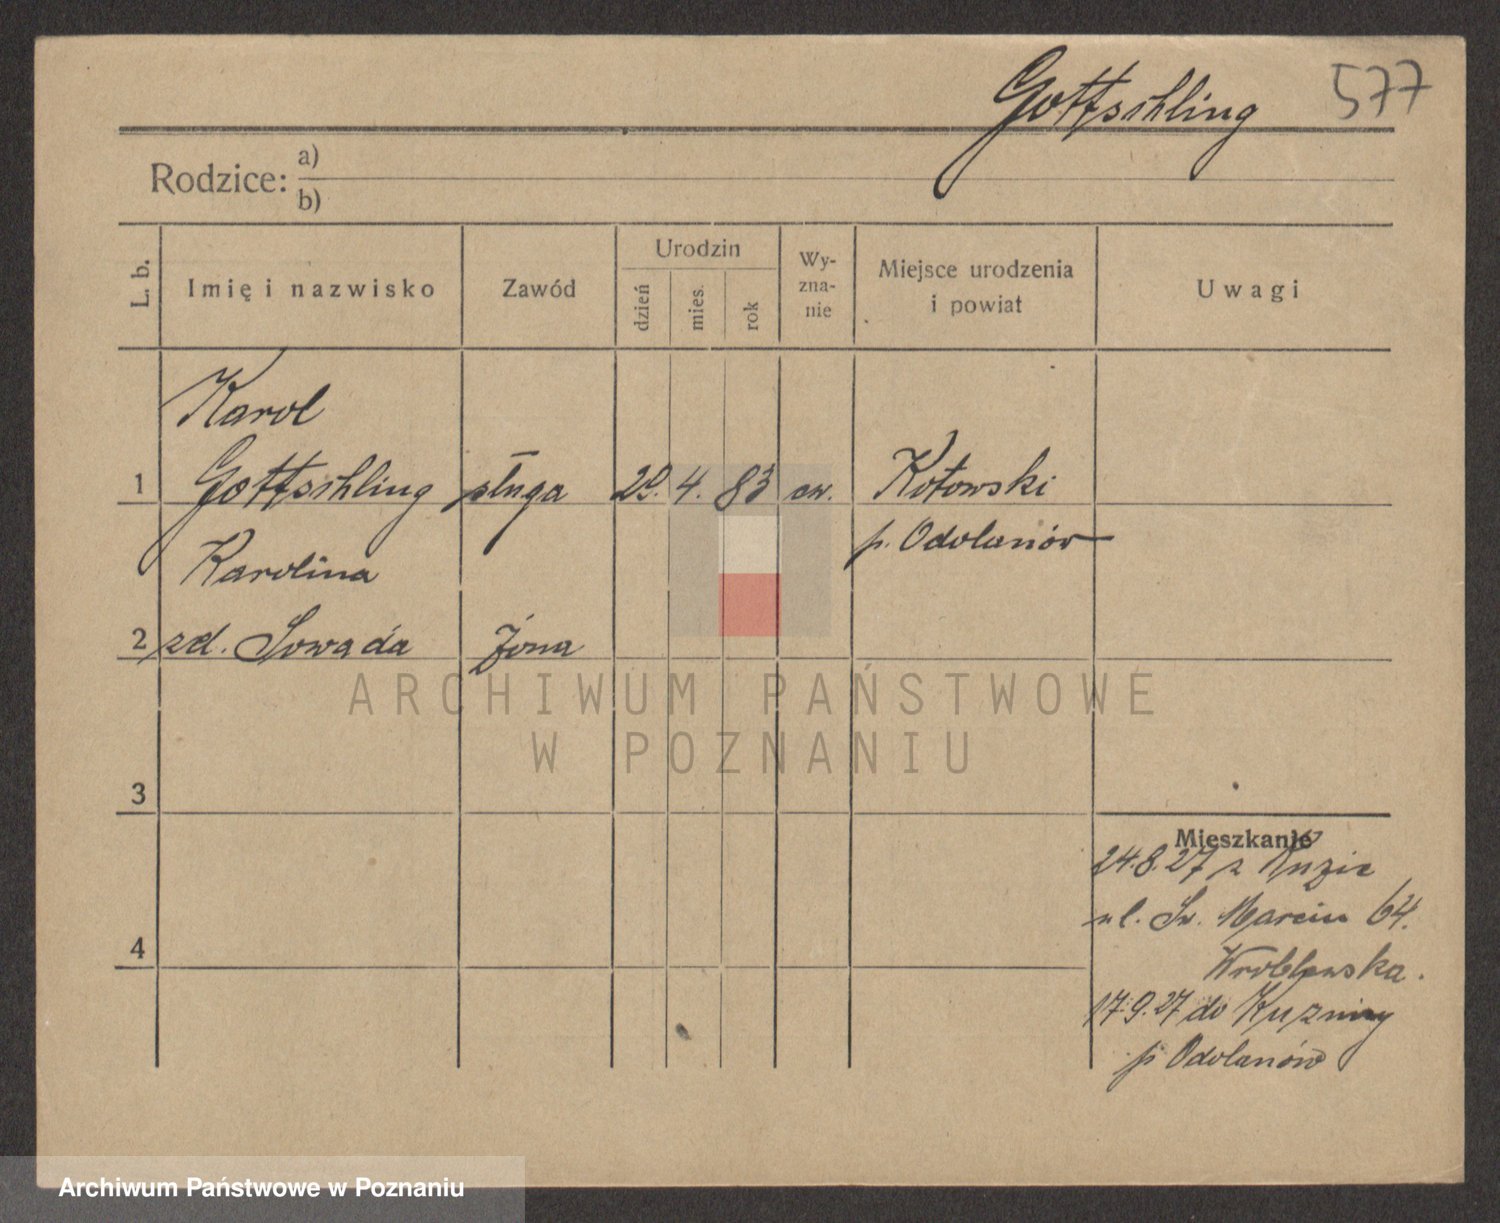 Gottschling 577
Rodzice: a)
b)
L. b.
Imię i nazwisko
Zawód
Urodzin
dzień
mies.
rok
Wy-
zna-
nie
Miejsce urodzenia
i powiat
Uwagi
Karol
1 Gottschling sługa 29. 4. 83 ew. Kotowski
p. Odolanów
Karolina
2 zd. Sowada żona
3
4
Mieszkanie
24.8.27 z
ul. Św. Marcin 64.
Wroblewska.
17.9.27 do Kuźnicy
p Odolanów
ARCHIWUM PAŃSTWOWE
W POZNANIU
Archiwum Państwowe w Poznaniu